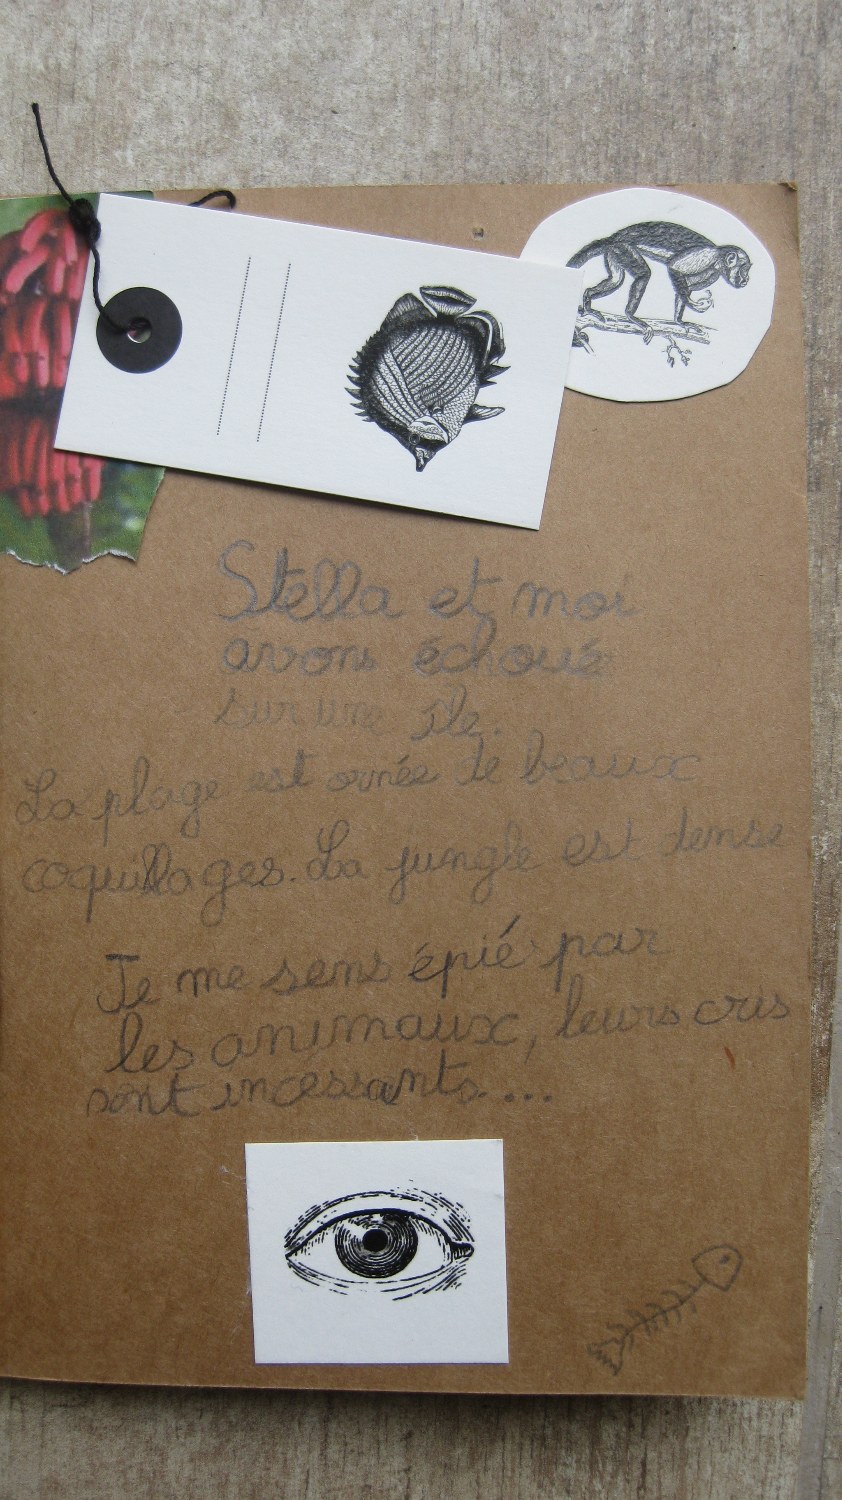 Stella et moi
avons échoué
sur une île.
La plage est ornée de beaux
coquillages. La jungle est dense
Je me sens épié par
les animaux, leurs cris
sont incessants....